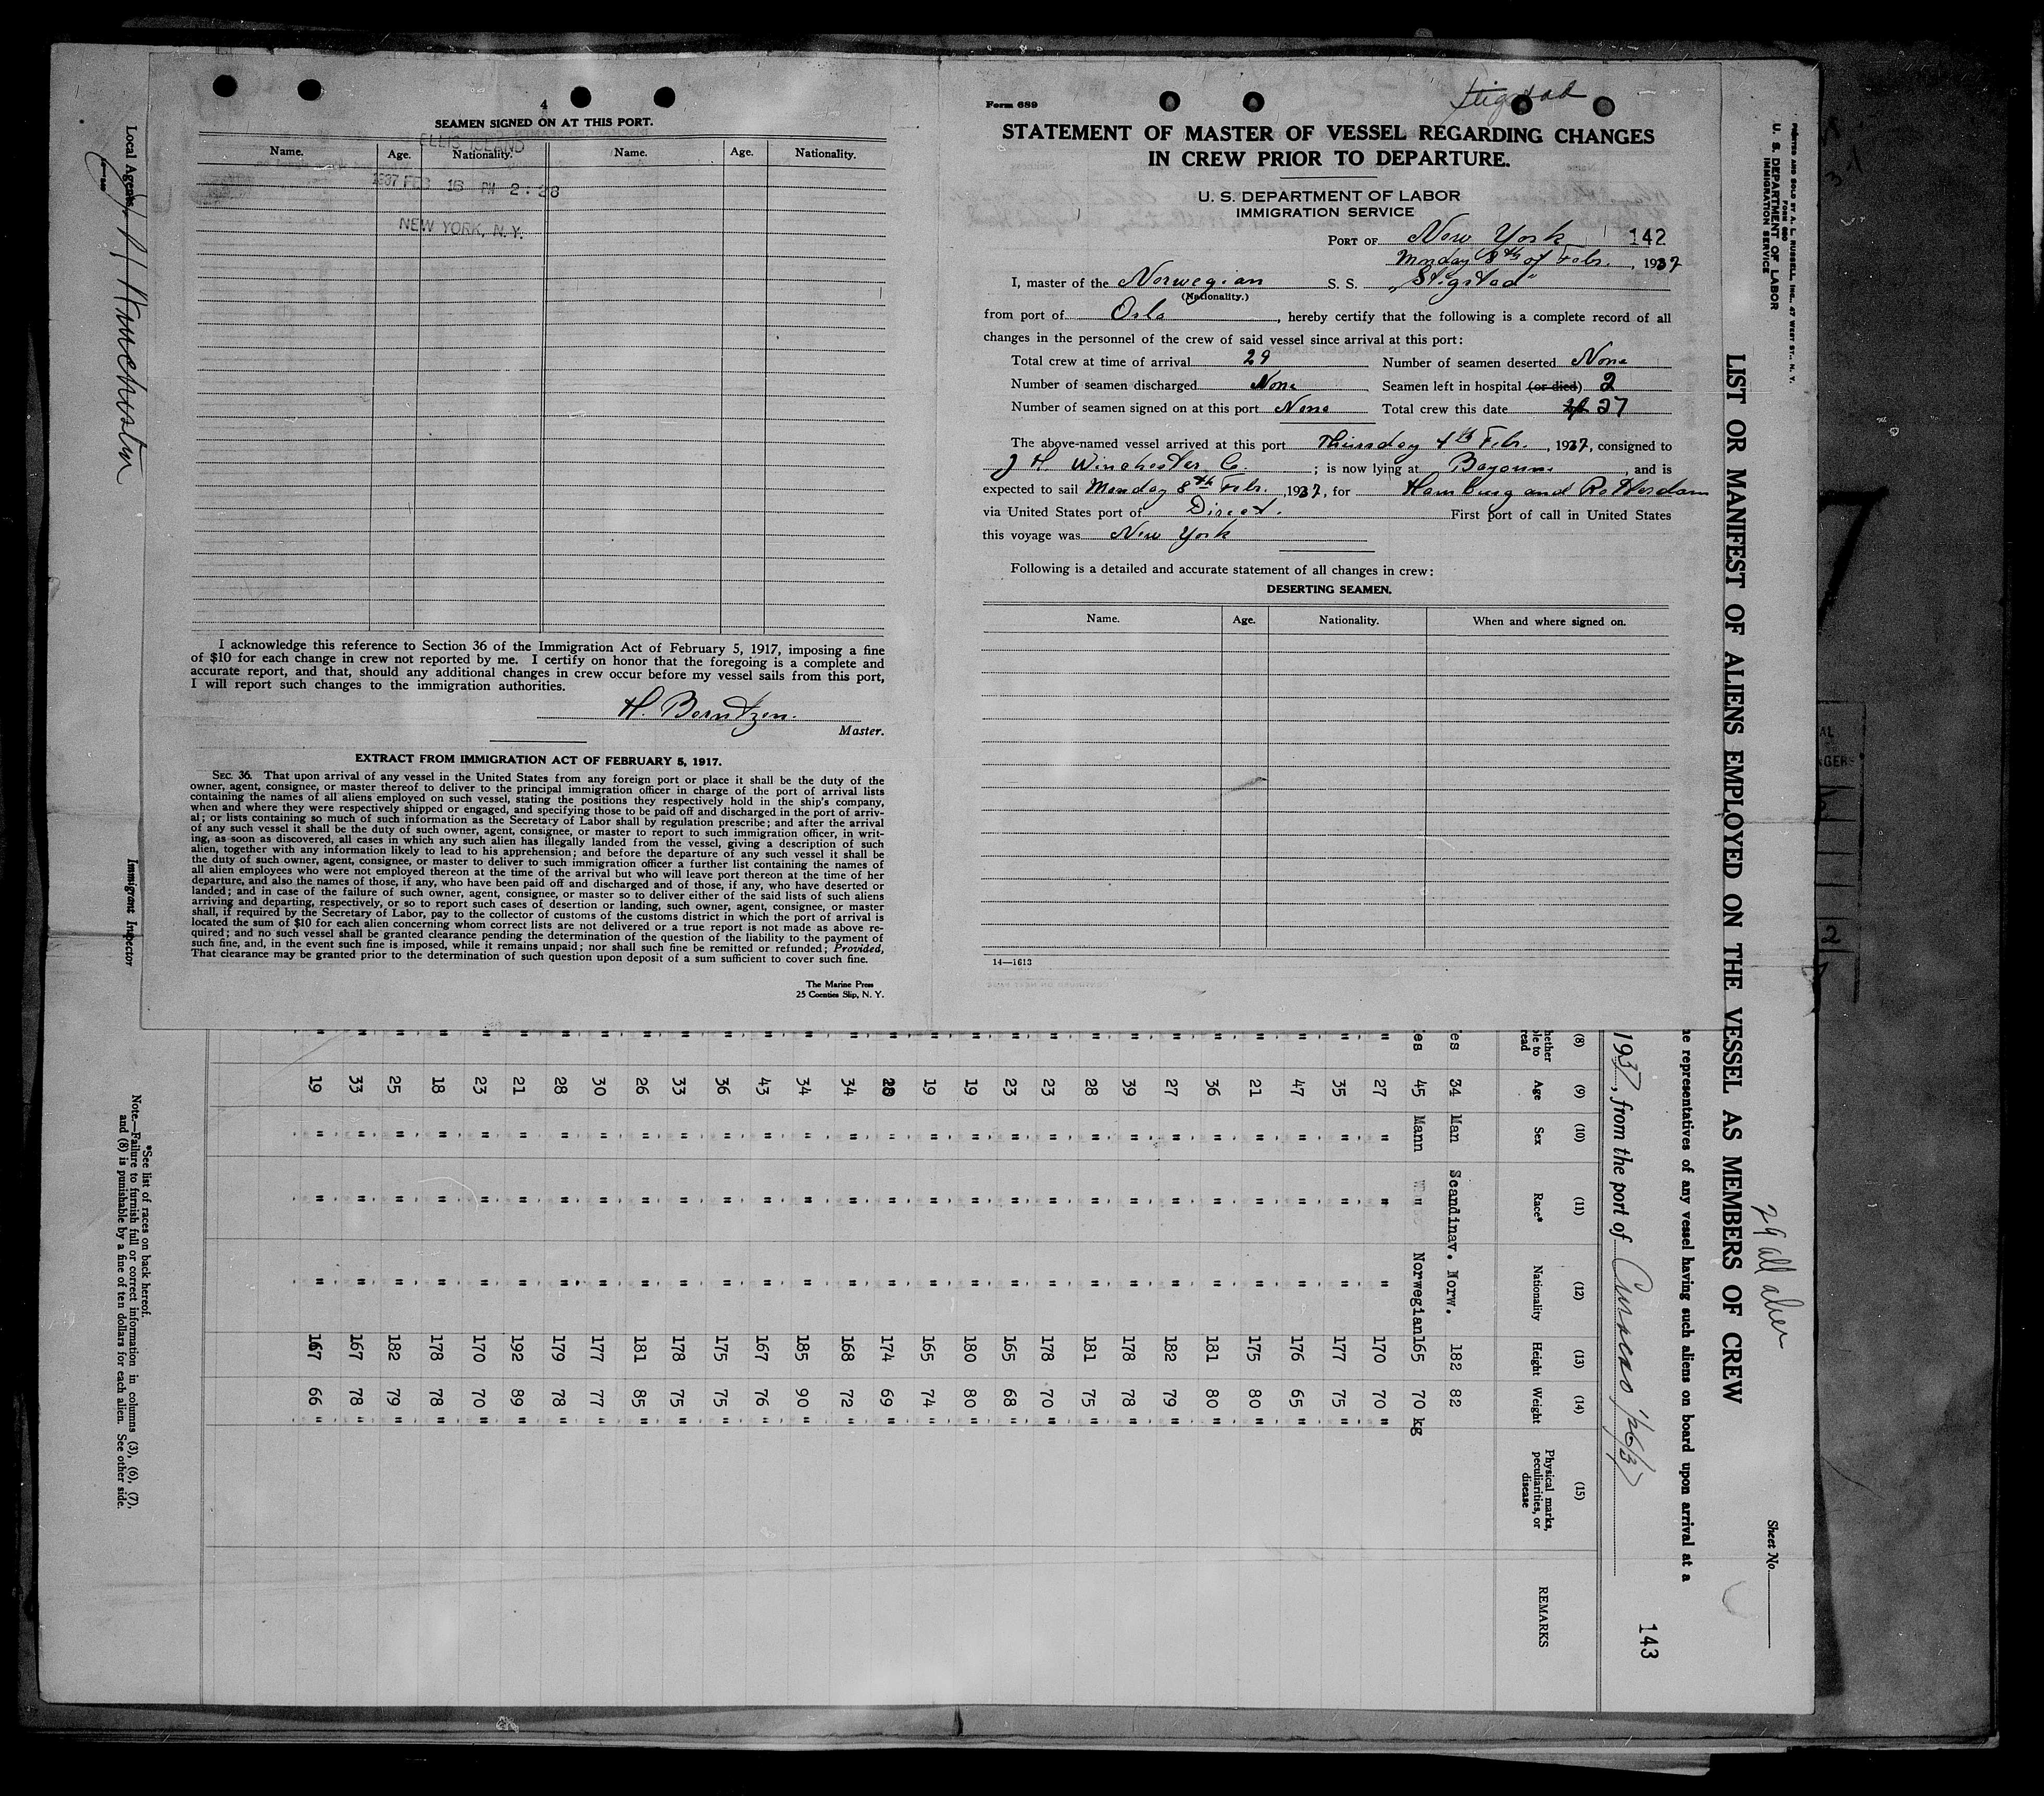 4
SEAMEN SIGNED ON AT THIS PORT.
Name. Age. Nationality. Name. Age. Nationality.
ELLIS ISLAND
1937 FEB 16 PM 2:28
NEW YORK, N.Y.
I acknowledge this reference to Section 36 of the Immigration Act of February 5, 1917, imposing a fine
of $10 for each change in crew not reported by me. I certify on honor that the foregoing is a complete and
accurate report, and that, should any additional changes in crew occur before my vessel sails from this port,
I will report such changes to the immigration authorities.
H. Berntzen.
Master.
EXTRACT FROM IMMIGRATION ACT OF FEBRUARY 5, 1917.
SEC. 36. That upon arrival of any vessel in the United States from any foreign port or place it shall be the duty of the
owner, agent, consignee, or master thereof to deliver to the principal immigration officer in charge of the port of arrival lists
containing the names of all aliens employed on such vessel, stating the positions they respectively hold in the ship's company,
when and where they were respectively shipped or engaged, and specifying those to be paid off and discharged in the port of arriv-
al; or lists containing so much of such information as the Secretary of Labor shall by regulation prescribe; and after the arrival
of any such vessel it shall be the duty of such owner, agent, consignee, or master to report to such immigration officer, in writ-
ing, as soon as discovered, all cases in which any such alien has illegally landed from the vessel, giving a description of such
alien, together with any information likely to lead to his apprehension; and before the departure of any such vessel it shall be
the duty of such owner, agent, consignee, or master to deliver to such immigration officer a further list containing the names of
all alien employees who were not employed thereon at the time of the arrival but who will leave port thereon at the time of her
departure, and also the names of those, if any, who have been paid off and discharged and of those, if any, who have deserted or
landed; and in case of the failure of such owner, agent, consignee, or master so to deliver either of the said lists of such aliens
arriving and departing, respectively, or so to report such cases of desertion or landing, such owner, agent, consignee, or master
shall, if required by the Secretary of Labor, pay to the collector of customs of the customs district in which the port of arrival is
located the sum of $10 for each alien concerning whom correct lists are not delivered or a true report is not made as above re-
quired; and no such vessel shall be granted clearance pending the determination of the question of the liability to the payment of
such fine, and, in the event such fine is imposed, while it remains unpaid; nor shall such fine be remitted or refunded; Provided,
That clearance may be granted prior to the determination of such question upon deposit of a sum sufficient to cover such fine.
The Marine Press
25 Coenties Slip, N. Y.
Form 689
Stigstad
STATEMENT OF MASTER OF VESSEL REGARDING CHANGES
IN CREW PRIOR TO DEPARTURE.
U. S. DEPARTMENT OF LABOR
IMMIGRATION SERVICE
PORT OF New York 142
Monday 8th of Febr. , 1937
I, master of the Norwegian S. S. "Stigstad"
(Nationality.)
from port of Oslo , hereby certify that the following is a complete record of all
changes in the personnel of the crew of said vessel since arrival at this port:
Total crew at time of arrival 29 Number of seamen deserted None
Number of seamen discharged None Seamen left in hospital (or died) 2
Number of seamen signed on at this port None Total crew this date 27
The above-named vessel arrived at this port Thursday 4th Febr. , 1937, consigned to
J H Winchester Co. ; is now lying at Bayonne , and is
expected to sail Monday 8th Febr. , 1937, for Hamburg and Rotterdam
via United States port of Direct. First port of call in United States
this voyage was New York
Following is a detailed and accurate statement of all changes in crew:
DESERTING SEAMEN.
Name. Age. Nationality. When and where signed on.
14—1613
PRINTED AND SOLD BY A. L. RUSSELL, INC., 47 WEST ST., N. Y.
FORM 680
U. S. DEPARTMENT OF LABOR
IMMIGRATION SERVICE
Sheet No.
29 all alien
LIST OR MANIFEST OF ALIENS EMPLOYED ON THE VESSEL AS MEMBERS OF CREW
he representatives of any vessel having such aliens on board upon arrival at a
1937, from the port of Curacao 143
(8) (9) (10) (11) (12) (13) (14) (15)
hether ble to read Age Sex Race* Nationality Height Weight Physical marks, peculiarities, or disease REMARKS
es 34 Man Scandinav. Norw. 182 82
es 45 Mann " Norwegian 165 70 kg
" 27 " " " 170 70 "
" 35 " " " 177 75 "
" 47 " " " 176 65 "
" 21 " " " 175 80 "
" 36 " " " 181 80 "
" 27 " " " 182 79 "
" 39 " " " 178 78 "
" 28 " " " 181 75 "
" 23 " " " 178 70 "
" 23 " " " 165 68 "
" 19 " " " 180 80 "
" 19 " " " 165 74 "
" " " " 174 69 "
" 34 " " " 168 72 "
" 34 " " " 185 90 "
" 43 " " " 167 76 "
" 36 " " " 175 75 "
" 33 " " " 178 75 "
" 26 " " " 181 85 "
" 30 " " " 177 77 "
" 28 " " " 179 78 "
" 21 " " " 192 89 "
" 23 " " " 170 70 "
" 18 " " " 178 78 "
" 25 " " " 182 79 "
" 33 " " " 167 78 "
" 19 " " " 167 66 "
Local Agents
Immigrant Inspector
*See list of races on back hereof.
Note.—Failure to furnish full or correct information in columns (3), (6), (7),
and (8) is punishable by a fine of ten dollars for each alien. See other side.
7
2